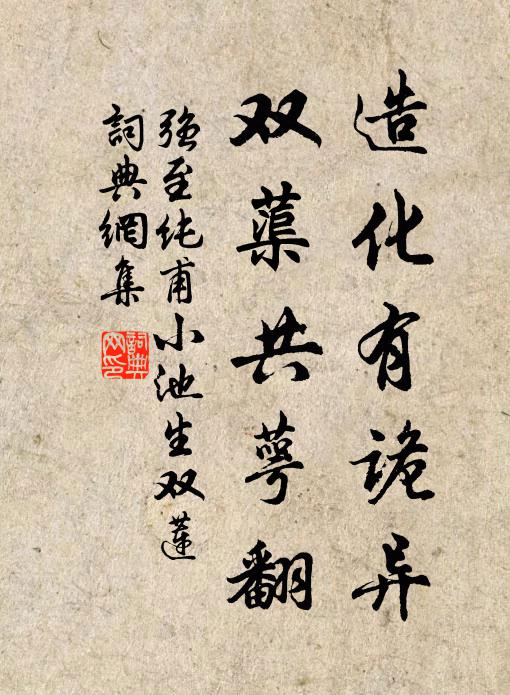 造化有诡异
双蕖共萼翻
强至纯甫小池生双莲
詞典網集
詞典网印